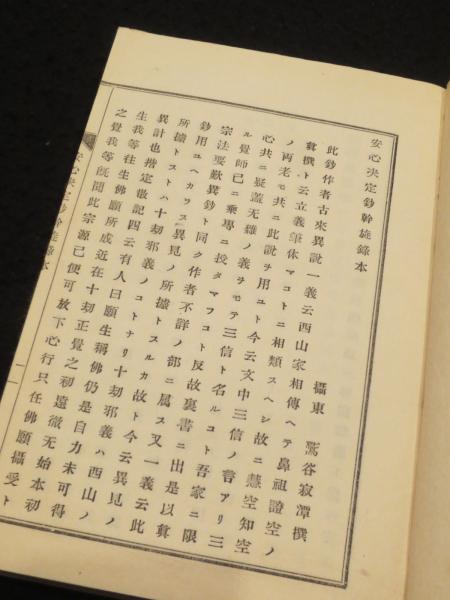 安心決定鈔幹旋錄本
攝東 鷲谷寂潭撰
此鈔作者古來異說一義云西山家相傳ヘテ鼻祖證空ノ
眞撰ト云立義筆体マコトニ相類スヘシ故ニ慧空知空
ノ兩老モ共ニ此說ヲ用ユト今云文中三信ノ言アリ三
心共ニ疑蓋无雜ノ義ヲモテ三信ト名ルコト吾家ニ限
ル覺師已ニ乘專ニ授タマフコト反故裏書ニ出是以眞
宗法要歎異鈔ト同ク作者不詳ノ部ニ属ス又一義云此
鈔用ユヘカラス異見ノ所據トスルカ故ト今云異見ノ
所據トストハ十劫邪義ノコトナリ十劫邪義ハ西山ノ
異計也揩定敬記四云有人曰願生稱佛仍是自力未可得
生我等往生佛願所成近在十劫正覺之初遠微无始本初
之覺我等旣聞此宗源已便可放下心行只任佛願攝受ト
安心決定鈔幹旋錄本
一